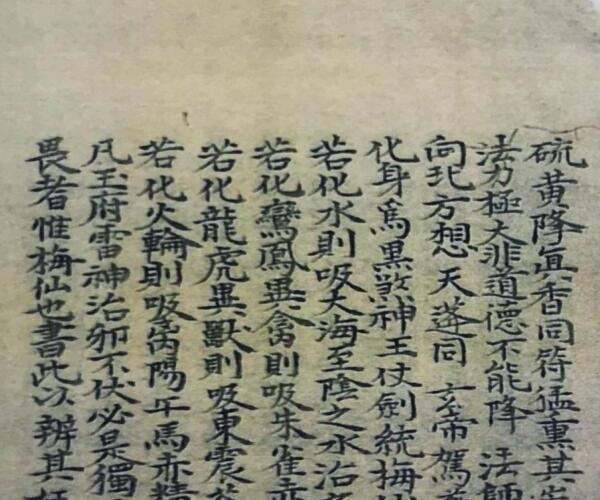 硫黄降眞香同符猛熏其
法力極大非道德不能降 法師
向北方想天蓬同 玄帝駕
化身爲黒煞神王仗劍統梅
若化水則吸大海至陰之水治
若化鸞鳳異禽則吸朱雀
若化龍虎異獸則吸東震
若化火輪則吸丙陽午馬赤精
凡玉府雷神治邪不伏必是獨
畏者惟梅仙也書此以辨其